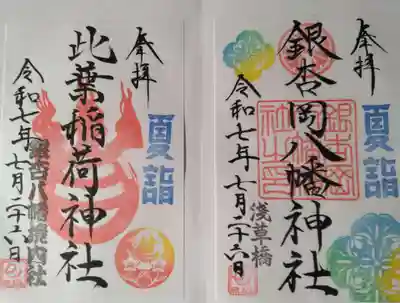 奉拝
銀杏岡八幡神社
夏詣
浅草橋
令和七年七月二十六日
奉拝
此葉稲荷神社
夏詣
銀杏岡八幡境内社
令和七年七月二十六日